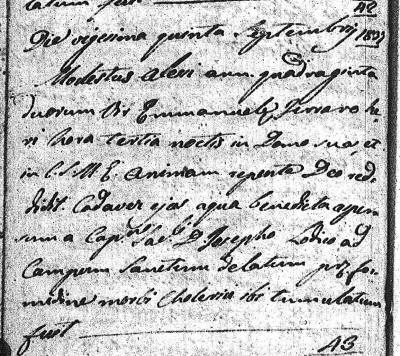 latum fuit 42
Die vigesima quinta Septembris 1837
Modestus Aleri ann. quadraginta
duorum Vir Emmanuele Ferraro he
ri hora tertia noctis in Domo sua, et
in C. S. M. E. animam repente Deo red,
didit. Cadaver ejus aqua benedicta asper
sum a Sac. D. Josepho Lodico ad
Campum Sanctum delatum for
midine morbi Cholerici ibi tumulatum
fuit
43